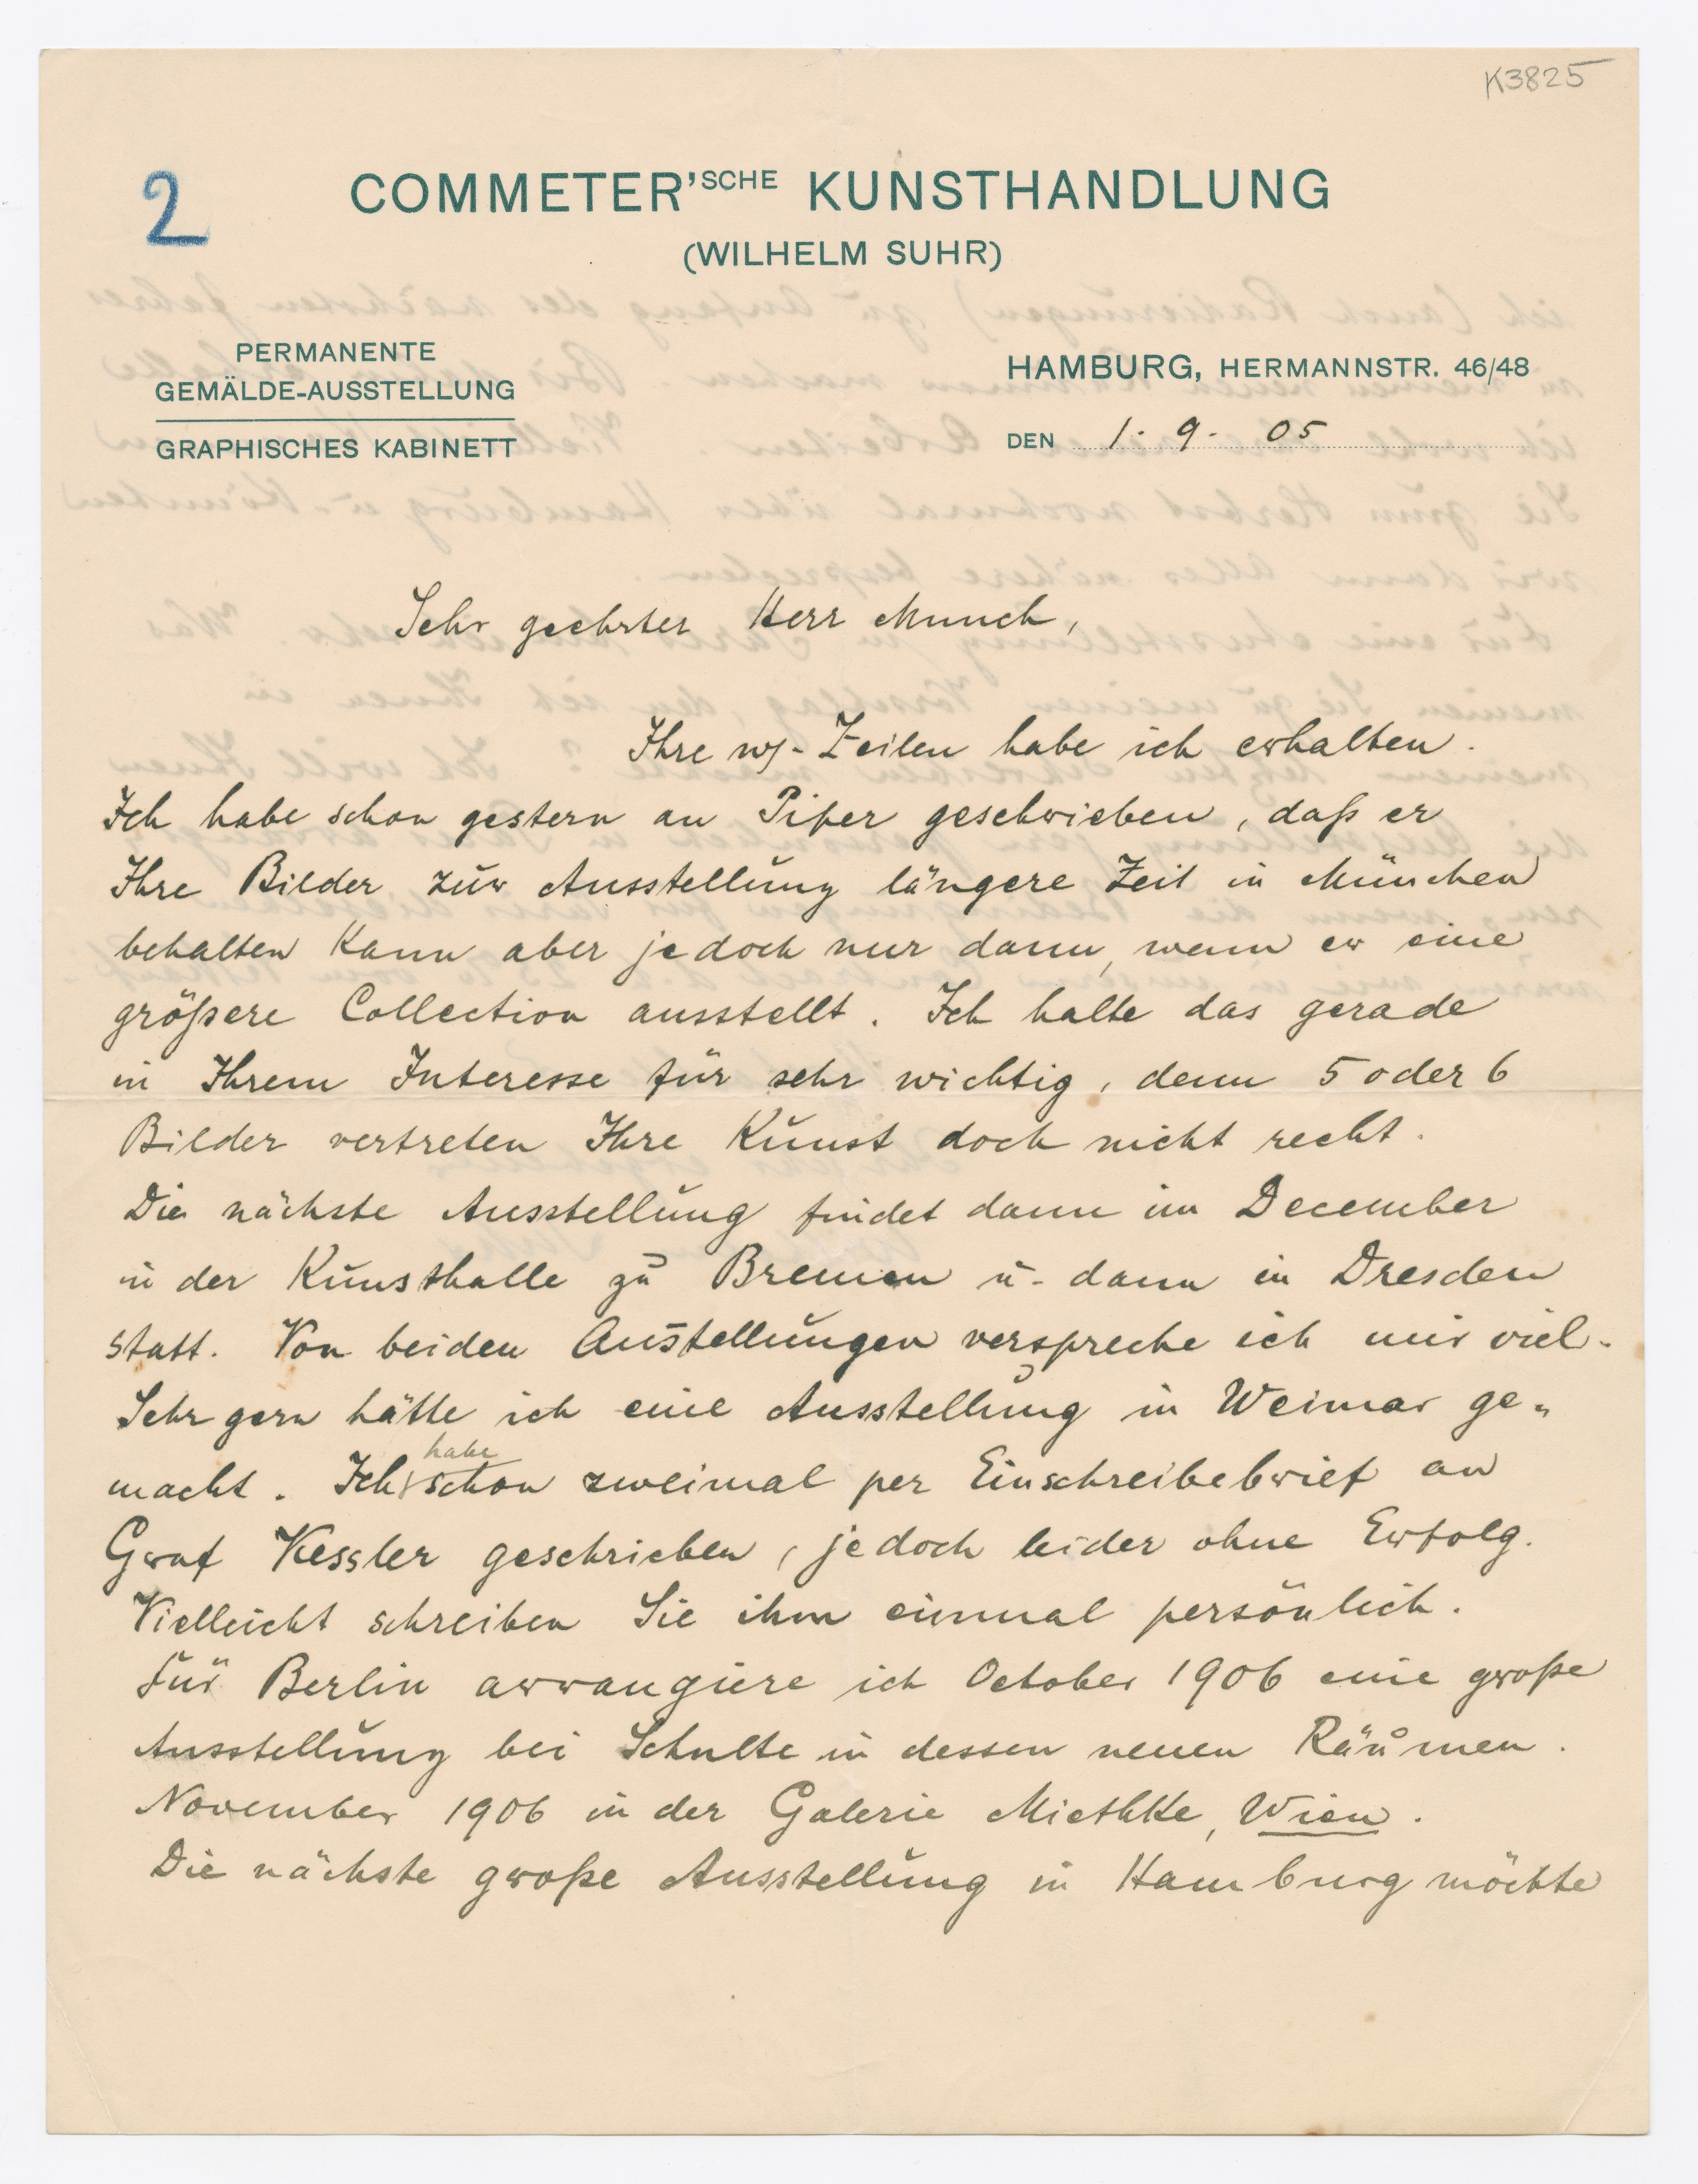 K3825
2
COMMETER'SCHE KUNSTHANDLUNG
(WILHELM SUHR)
PERMANENTE
GEMÄLDE-AUSSTELLUNG
GRAPHISCHES KABINETT
HAMBURG, HERMANNSTR. 46/48
DEN 1. 9. 05
Sehr geehrter Herr Munch,
Ihre Zeilen habe ich erhalten.
Ich habe schon gestern an Piper geschrieben, daß er
Ihre Bilder zur Ausstellung längere Zeit in München
behalten kann aber jedoch nur dann, wenn er eine
größere Collection ausstellt. Ich halte das gerade
in Ihrem Interesse für sehr wichtig, denn 5 oder 6
Bilder vertreten Ihre Kunst doch nicht recht.
Die nächste Ausstellung findet dann im December
in der Kunsthalle zu Bremen u- dann in Dresden
statt. Von beiden Austellungen verspreche ich mir viel.
Sehr gern hätte ich eine Ausstellung in Weimar ge-
macht. Ich habe schon zweimal per Einschreibebrief an
Graf Kessler geschrieben, jedoch leider ohne Erfolg.
Vielleicht schreiben Sie ihm einmal persönlich.
Für Berlin arrangiere ich October 1906 eine große
Ausstellung bei Schulte in dessen neuen Räumen.
November 1906 in der Galerie Miethke, Wien.
Die nächste große Ausstellung in Hamburg möchte